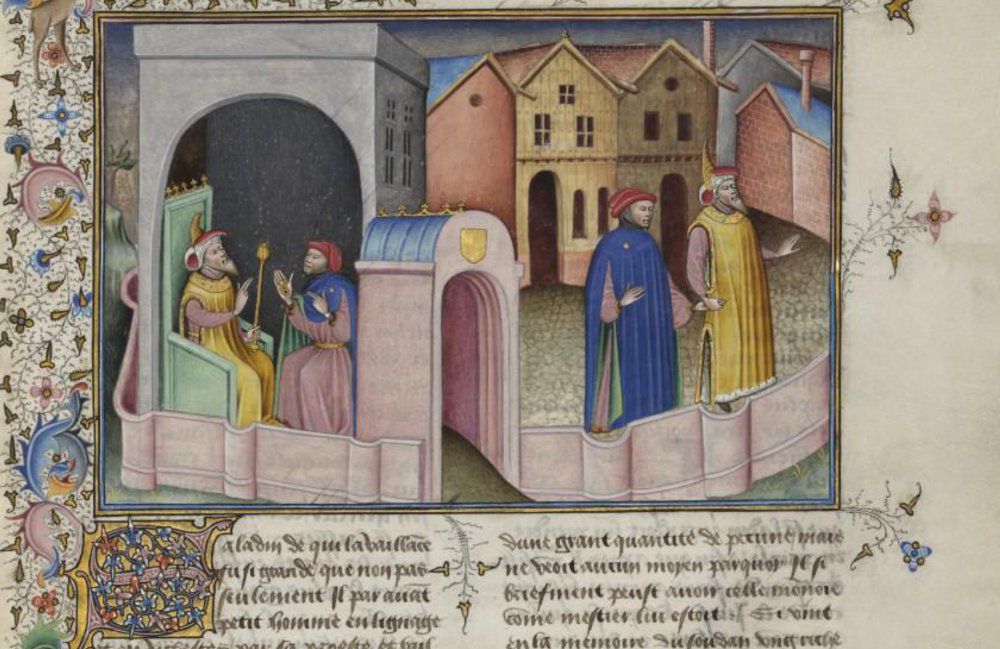 Saladin de qui la vaillāce
fu si grande que non pas
seulement Il par auant
petit homme en lignage
et en richesses par sa proesse et vail
dune grant quantite de pecune mais
ne veoit aucun moien parquoy Il si
briefment peust auoir celle monoie
cōme mestier lui estoit Et vint
en la memoire du soudan vng riche